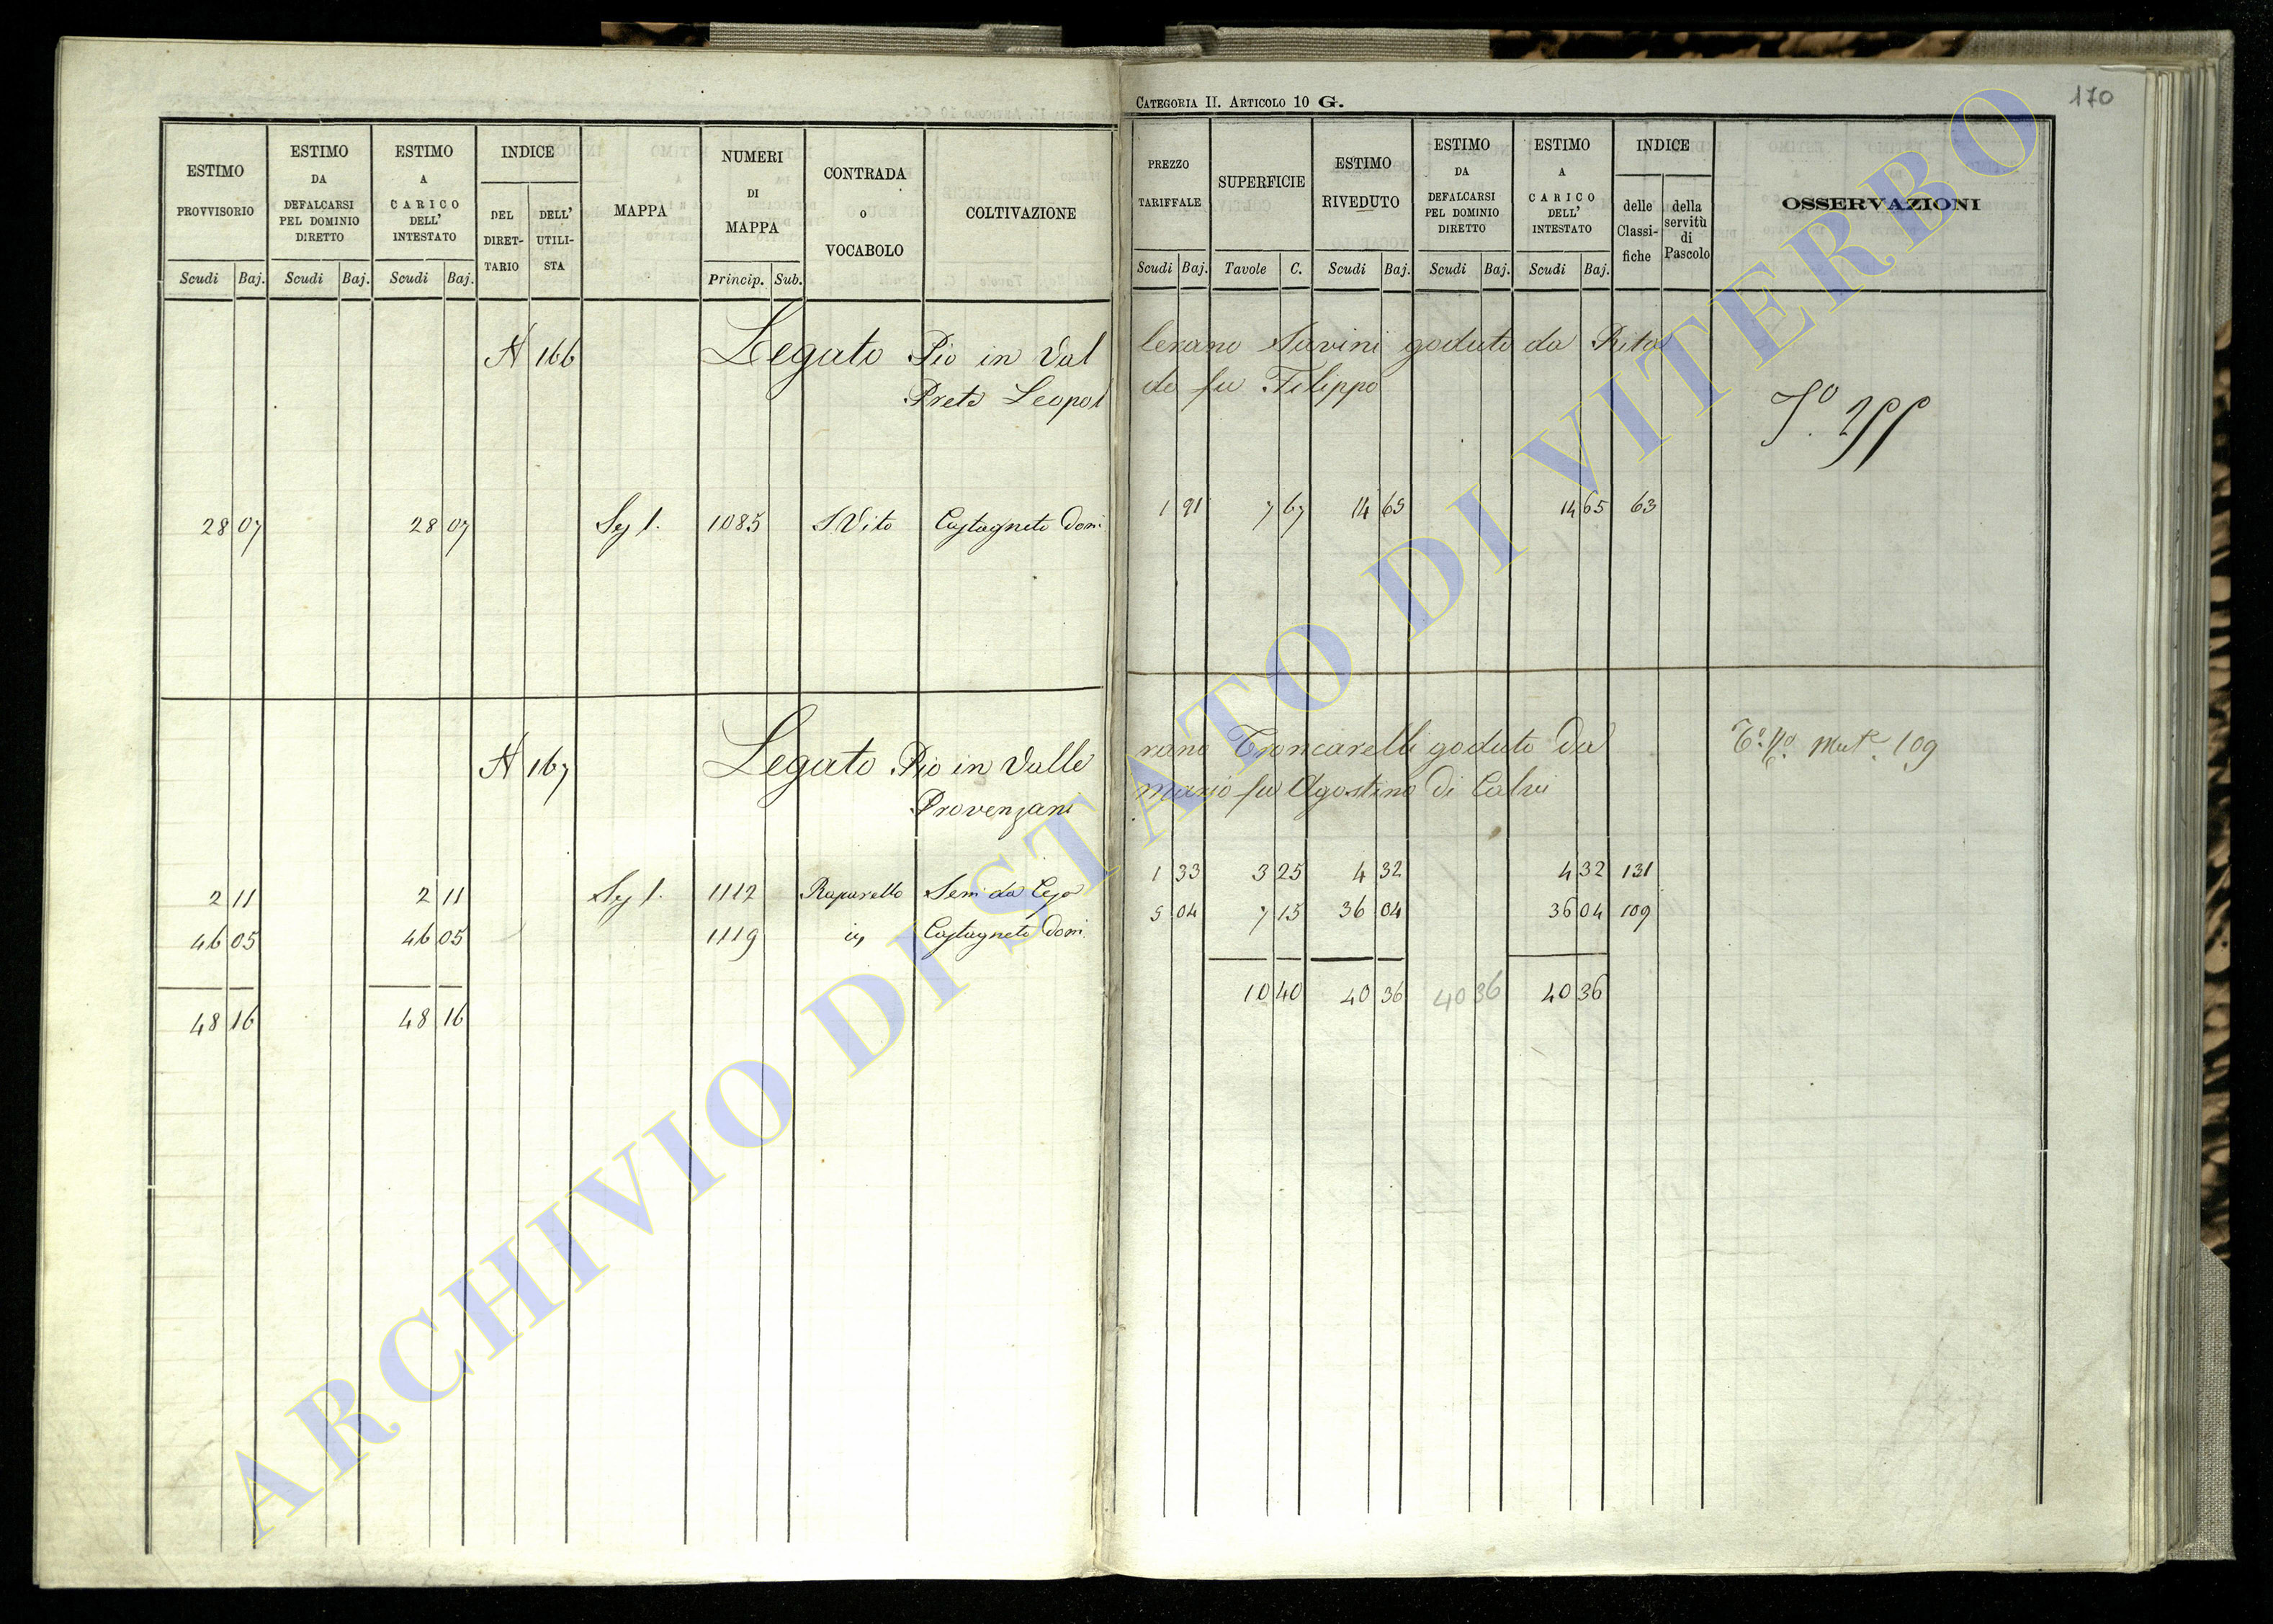 CATEGORIA II. ARTICOLO 10 G.
170
ESTIMO PROVVISORIO Scudi Baj.
ESTIMO DA DEFALCARSI PEL DOMINIO DIRETTO Scudi Baj.
ESTIMO A CARICO DELL' INTESTATO Scudi Baj.
INDICE DEL DIRETTARIO DELL' UTILISTA
MAPPA
NUMERI DI MAPPA Princip. Sub.
CONTRADA O VOCABOLO
COLTIVAZIONE
PREZZO TARIFFALE Scudi Baj.
SUPERFICIE Tavole C.
ESTIMO RIVEDUTO Scudi Baj.
ESTIMO DA DEFALCARSI PEL DOMINIO DIRETTO Scudi Baj.
ESTIMO A CARICO DELL' INTESTATO Scudi Baj.
INDICE delle Classifiche della servitù di Pascolo
OSSERVAZIONI
N 166 Legato Pio in Vallerano Savini goduto da Rita
Prete Leopoldo fu Filippo
28 07 28 07 Sez 1. 1085 S Vito Castagneto Dom. 1 91 7 67 14 65 14 65 63
N 167 Legato Pio in Vallerano Troncarelli goduto da
Provenzani Mario fu Agostino di Calvi
109
2 11 2 11 Sez 1. 1112 Raparello Sem. da Ceso 1 33 3 25 4 32 4 32 131
46 05 46 05 1119 Castagneto Dom. 5 04 7 15 36 04 36 04 109
48 16 48 16 10 40 40 36 40 36 40 36
ARCHIVIO DI STATO DI VITERBO